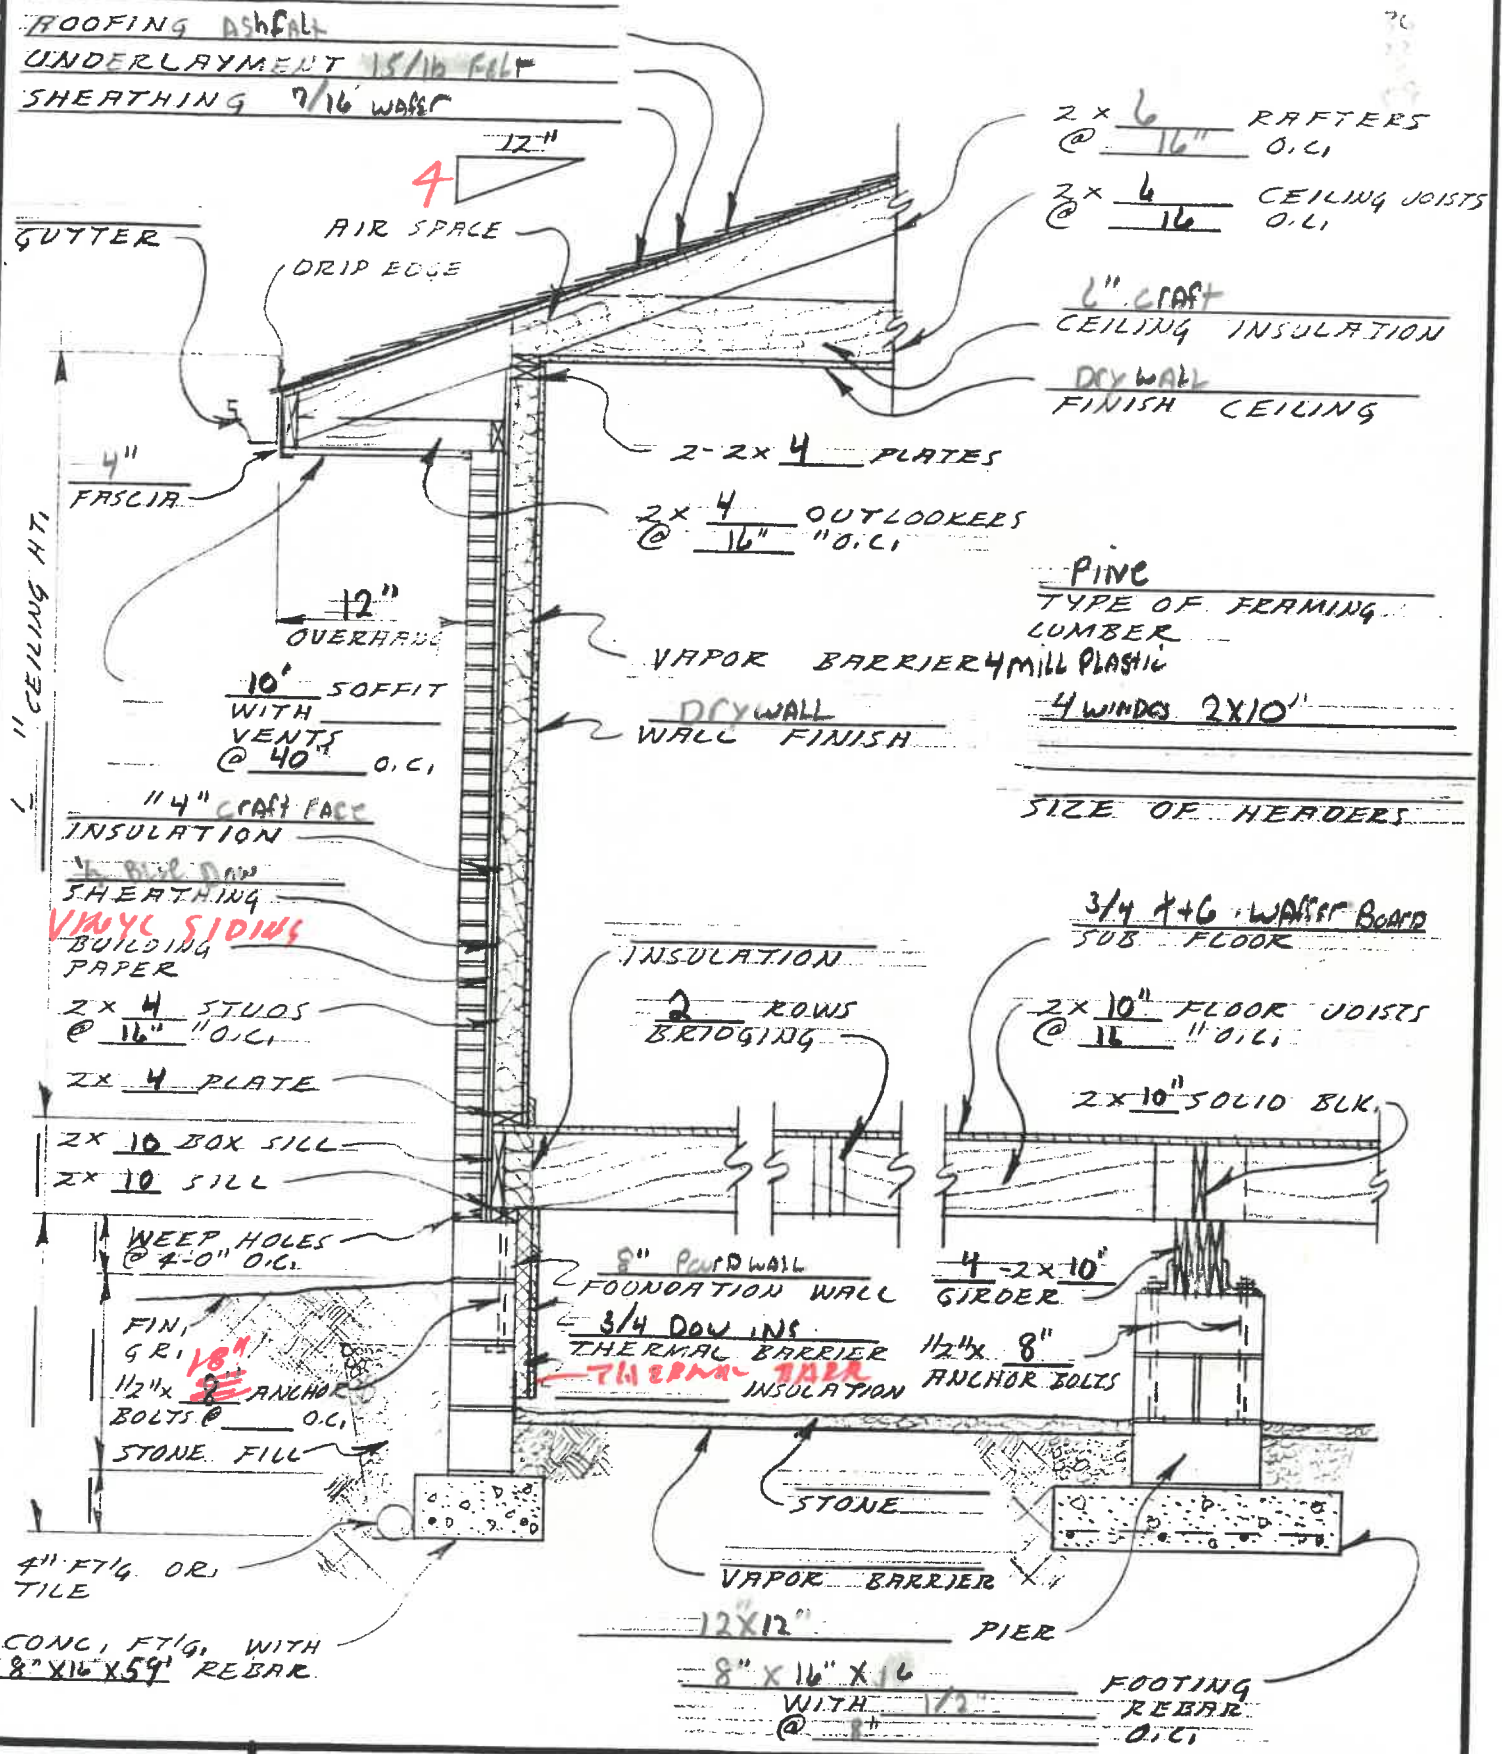 ROOFING AShfALt
UNDERLAYMENT 15/lb FELT
SHEATHING 7/16 WAfEr
12"
4
GUTTER
AIR SPACE
DRIP EDGE
2 x 6 RAFTERS
@ 16" O.C.
2 x 6 CEILING JOISTS
@ 16 O.C.
6" CrAft
CEILING INSULATION
DryWALL
FINISH CEILING
5
4"
FASCIA
2-2x 4 PLATES
2x 4 OUTLOOKERS
@ 16" "O.C.
" CEILING HT.
12"
OVERHANG
PINE
TYPE OF FRAMING
LUMBER
VAPOR BARRIER 4 MILL PLAStic
10" SOFFIT
WITH
VENTS
@ 40" O.C.
DryWALL
WALL FINISH
4 WINDOS 2X10"
SIZE OF HEADERS
"4" CrAft FACE
INSULATION
1/2 Blue Dow
SHEATHING
VINYL SIDING
BUILDING
PAPER
2 x 4 STUDS
@ 16" "O.C.
2x 4 PLATE
INSULATION
2 ROWS
BRIDGING
3/4 t+G WAffEr BoArD
SUB FLOOR
2x 10" FLOOR JOISTS
@ 16 "O.C.
2 x 10" SOLID BLK.
2x 10 BOX SILL
2x 10 SILL
WEEP HOLES
@ 4-0" O.C.
8" PourD WALL
FOUNDATION WALL
3/4 DOW INS.
THERMAL BARRIER
THERMAL BARR
INSULATION
4 -2x 10"
GIRDER
1/2"x 8"
ANCHOR BOLTS
FIN.
GR.
18"
1/2"x 8" ANCHOR
BOLTS @ O.C.
STONE FILL
STONE
4" FT'G. OR.
TILE
VAPOR BARRIER
12X12" PIER
CONC. FT'G. WITH
8"X16"X59' REBAR
8" X 16" X 16 FOOTING
WITH 1/2" REBAR
@ 8" O.C.